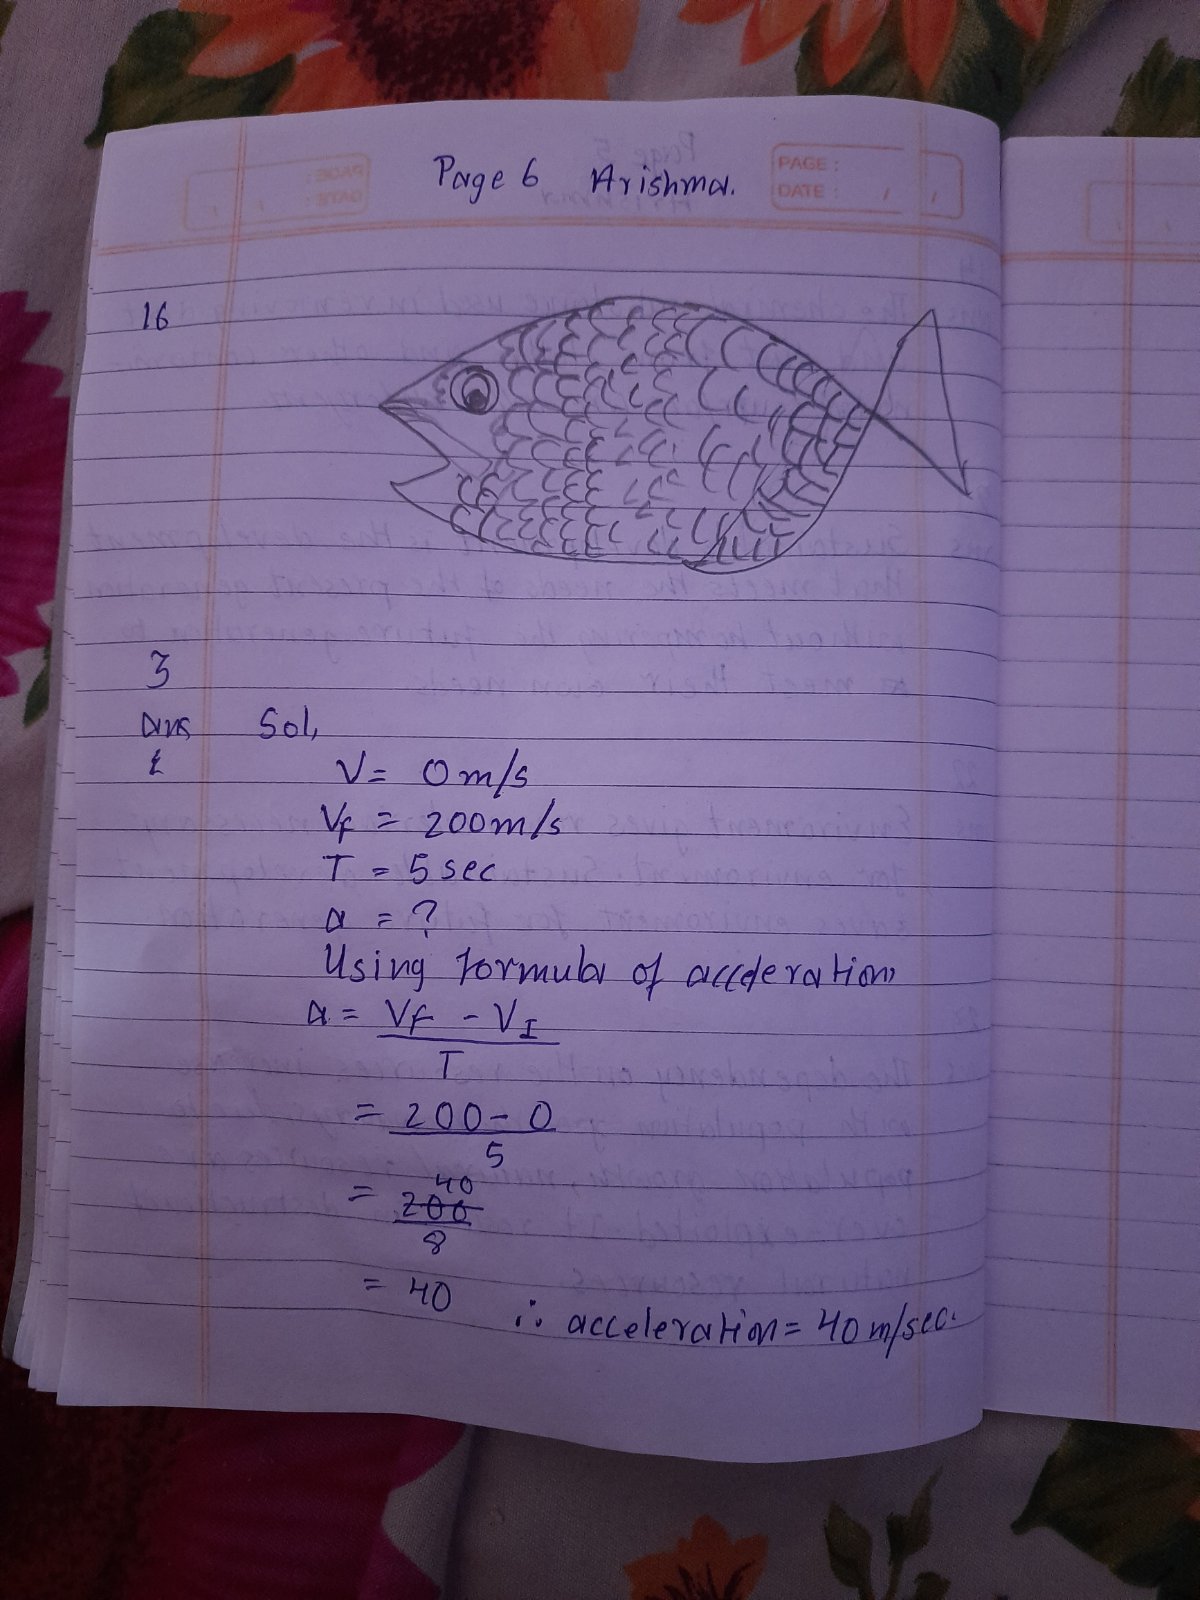 Page 6 Arishma.
PAGE :
DATE : / /
16
3
Ans Sol,
V = 0 m/s
Vf = 200 m/s
T = 5 sec
a = ?
Using formula of acceleration,
a = Vf - VI
T
= 200 - 0
5
40
= 200
8
= 40
∴ acceleration = 40 m/sec.